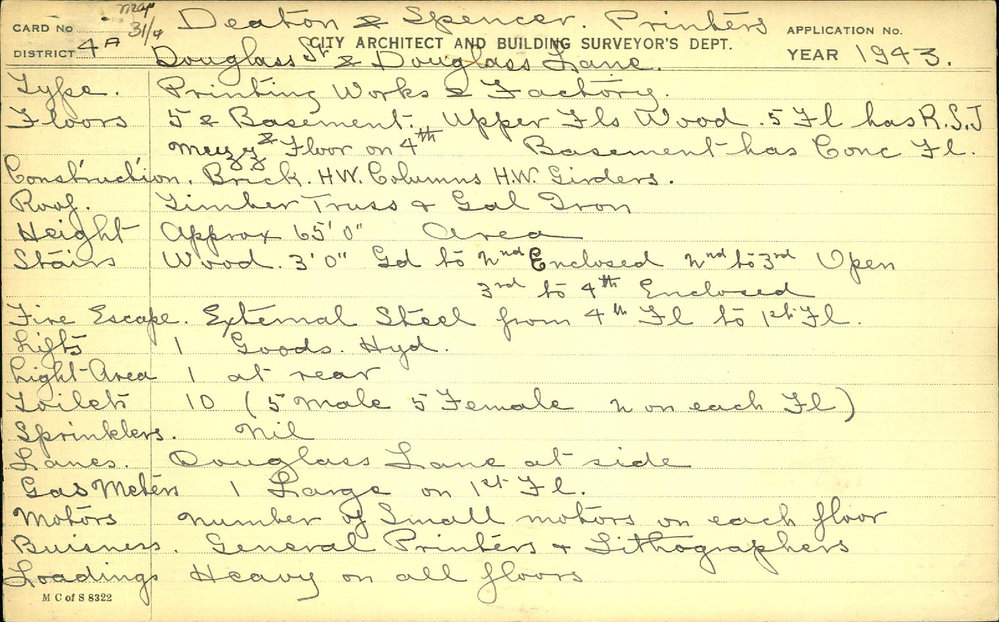 CARD No map 31/4 Deaton & Spencer. Printers APPLICATION No.
CITY ARCHITECT AND BUILDING SURVEYOR'S DEPT.
DISTRICT 4A Douglass St & Douglass Lane. YEAR 1943.
Type. Printing Works & Factory.
Floors 5 & Basement. Upper Fls Wood. 5 Fl has R.S.J
Mezz & Floor on 4th Basement has Conc Fl.
Construction. Brick. H.W. Columns H.W. Girders.
Roof. Timber Truss + Gal Iron
Height Approx 65'0" Area
Stairs Wood. 3'0" Gd to 2nd Enclosed 2nd to 3rd Open
3rd to 4th Enclosed
Fire Escape. External Steel from 4th Fl to 1st Fl.
Lifts 1 Goods. Hyd.
Light Area 1 at rear
Toilets 10 (5 Male 5 Female 2 on each Fl)
Sprinklers. Nil
Lanes. Douglass Lane at side
Gas Meters 1 Large on 1st Fl.
Motors Number of Small motors on each floor
Buisness. General Printers + Lithographers
Loadings Heavy on all floors
M C of S 8322